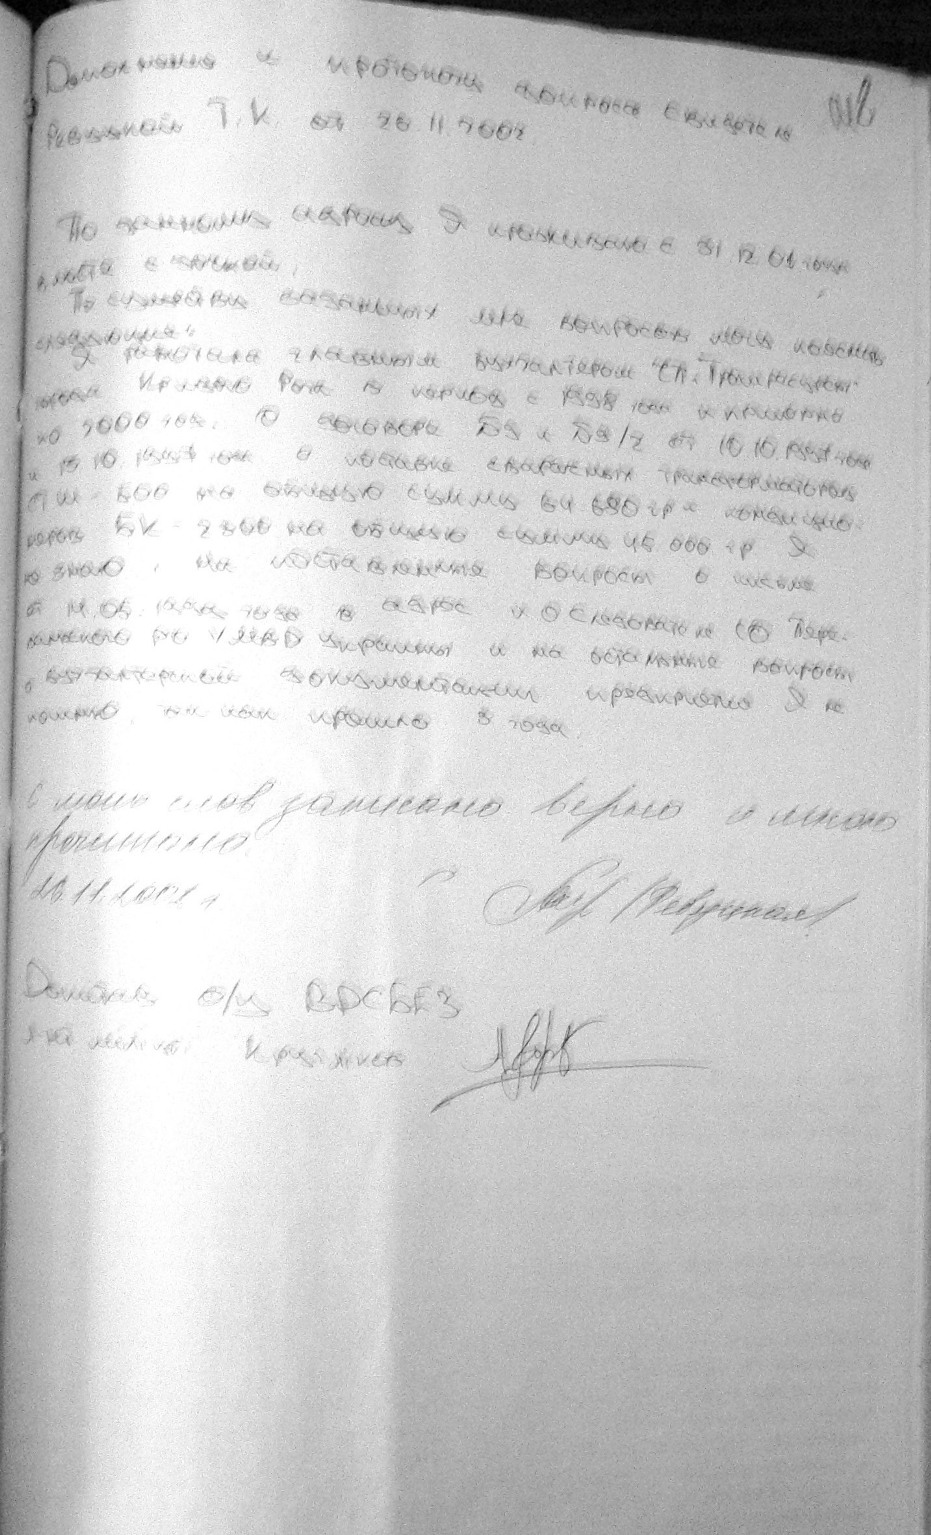 Дополнение к протоколу допроса свидетеля
Ревуцкой Т.К. от 20.11.2002
По данному адресу Я проживаю с 31.12.01 года
вместе с дочкой.
По существу заданных мне вопросов могу пояснить
следующее:
Я работала главным бухгалтером СП
города Кривого Рога в период с 1998 года и примерно
по 2000 год. О договоре 59 и 59/2 от 10.10.
и 10.10. года о поставке сварочных трансформаторов
на общую сумму гр и кондицио-
неров БК - на общую сумму 45 000 гр Я
не знаю. На поставленные вопросы о письме
от года в адрес и.о следователя СО
РО УМВД Украины и на остальные вопросы
о бухгалтерской документации предприятия Я не
помню, так как прошло 3 года.
С моих слов записано верно и мною
прочитано.
Ревуцкая
Допросил о/у ВДСБЕЗ